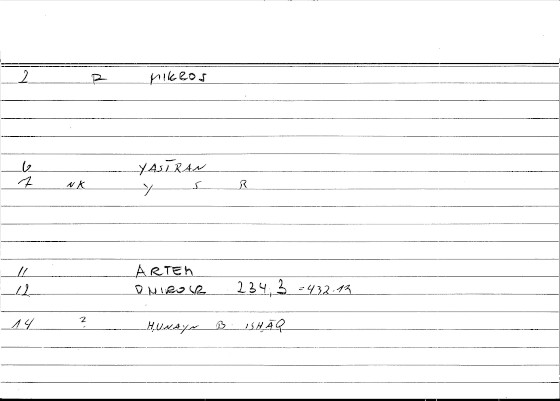 2 R MIKROS
6 YASĪRAN
7 NK Y S R
11 ARTEM
12 234,3 =432.12
14 ? HUNAYN B ISHĀQ